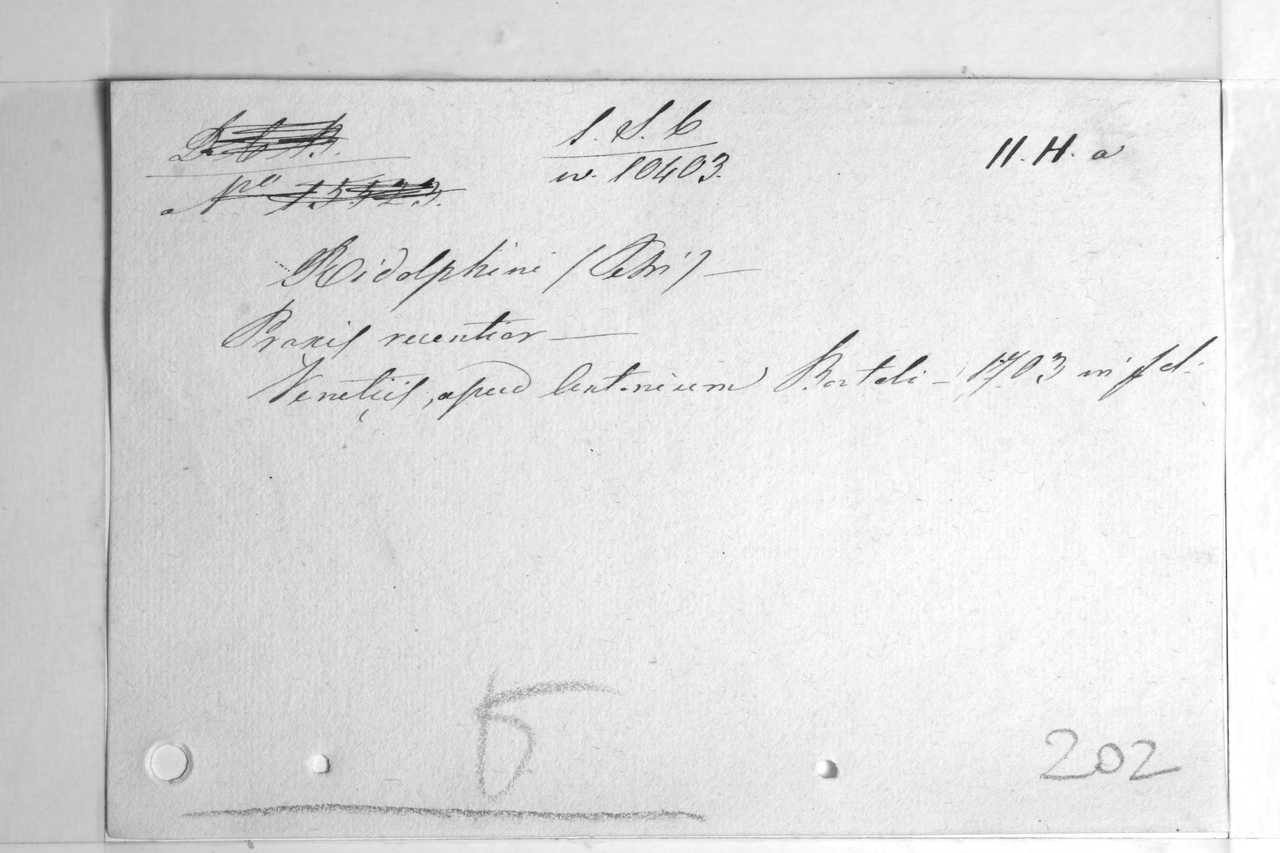 S. S. C
n. 10403.
11. H. a
N.ro 15123.
Ridolphini (Petri) —
Praxis recentior —
Venetiis, apud Antonium Bortoli — 1703 in fol.
5
202